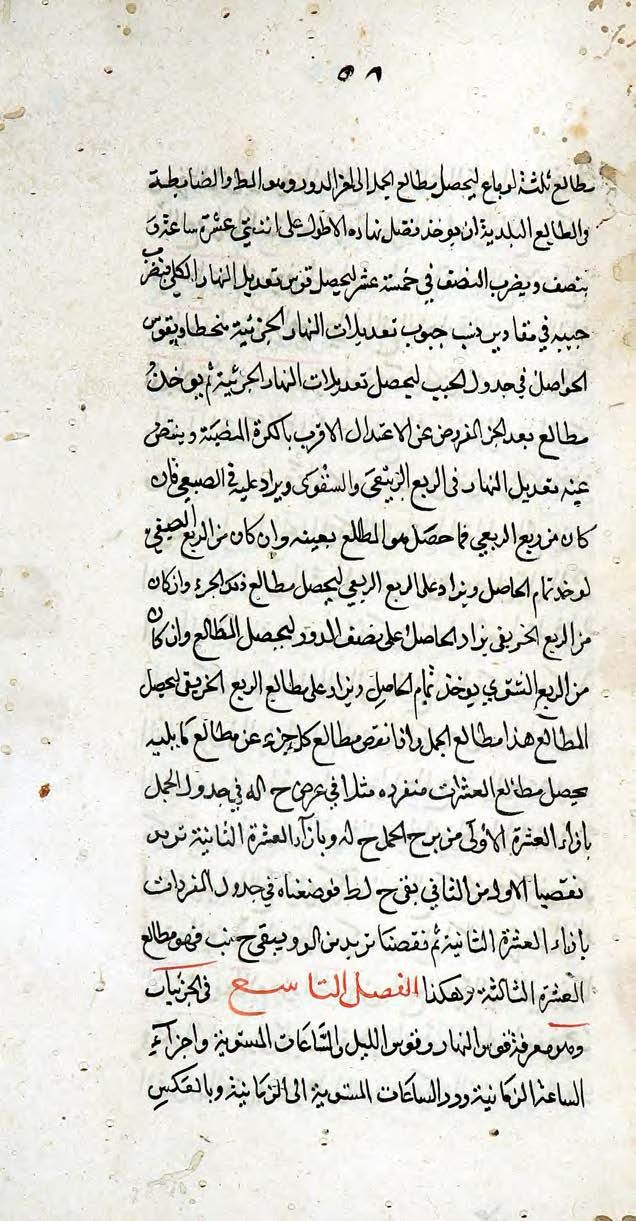 ٥٨
مطالع ثلثة ارباع ليحصل مطالع الجمل الى اخر الدور وهو المط والضابطة
والطالع البلدية ان يوخذ فضل نهاره الاطول على اثنتي عشرة ساعة و
ينصف ويضرب النصف في خمسة عشر ليحصل قوس تعديل النهار الكلي فيضرب
جيبه في مقادير نسب جيوب تعديلات النهار الجزئية منحطا ويقوس
الحواصل في جدول الجيب ليحصل تعديلات النهار الجزئية ثم يوخذ
مطالع بعد الجز المفروض عن الاعتدال الاقرب بالكرة المنصبة وينقص
عنه تعديل النهار في الربع الربيعي والشتوى ويزاد عليه في الصيفي فان
كان من ربع الربيعي فما حصل هو المطالع بعينه وان كان من الربع الصيفي
يوخذ تمام الحاصل ويزاد على الربع الربيعي ليحصل مطالع ذلك الجزء وان كان
من الربع الخريفي يزاد الحاصل على نصف الدور ليحصل المطالع وان كان
من الربع الشتوي يوخذ تمام الحاصل ويزاد على مطالع الربع الخريفي ليحصل
المطالع هذا مطالع الجمل واذا نقص مطالع كل جزء عن مطالع ما يليه
يحصل مطالع العشرات منفرده مثلا في عرض ح اله في جدول الجمل
بازاء العشرة الاولى من برج الحمل ح له وبازآء العشرة الثانية
نقصنا الاول من الثاني بقي ح لط فوضعناه في جدول المفردات
بازاء العشرة الثانية ثم نقصنا من ويبقى ح نب فهو مطالع
العشرة الثالثة وهكذا الفصل التاسع في الجزئيات
وهو معرفة قوس النهار وقوس الليل والساعات المستوية واجزآء
الساعة الزمانية ورد الساعات المستوية الى الزمانية وبالعكس